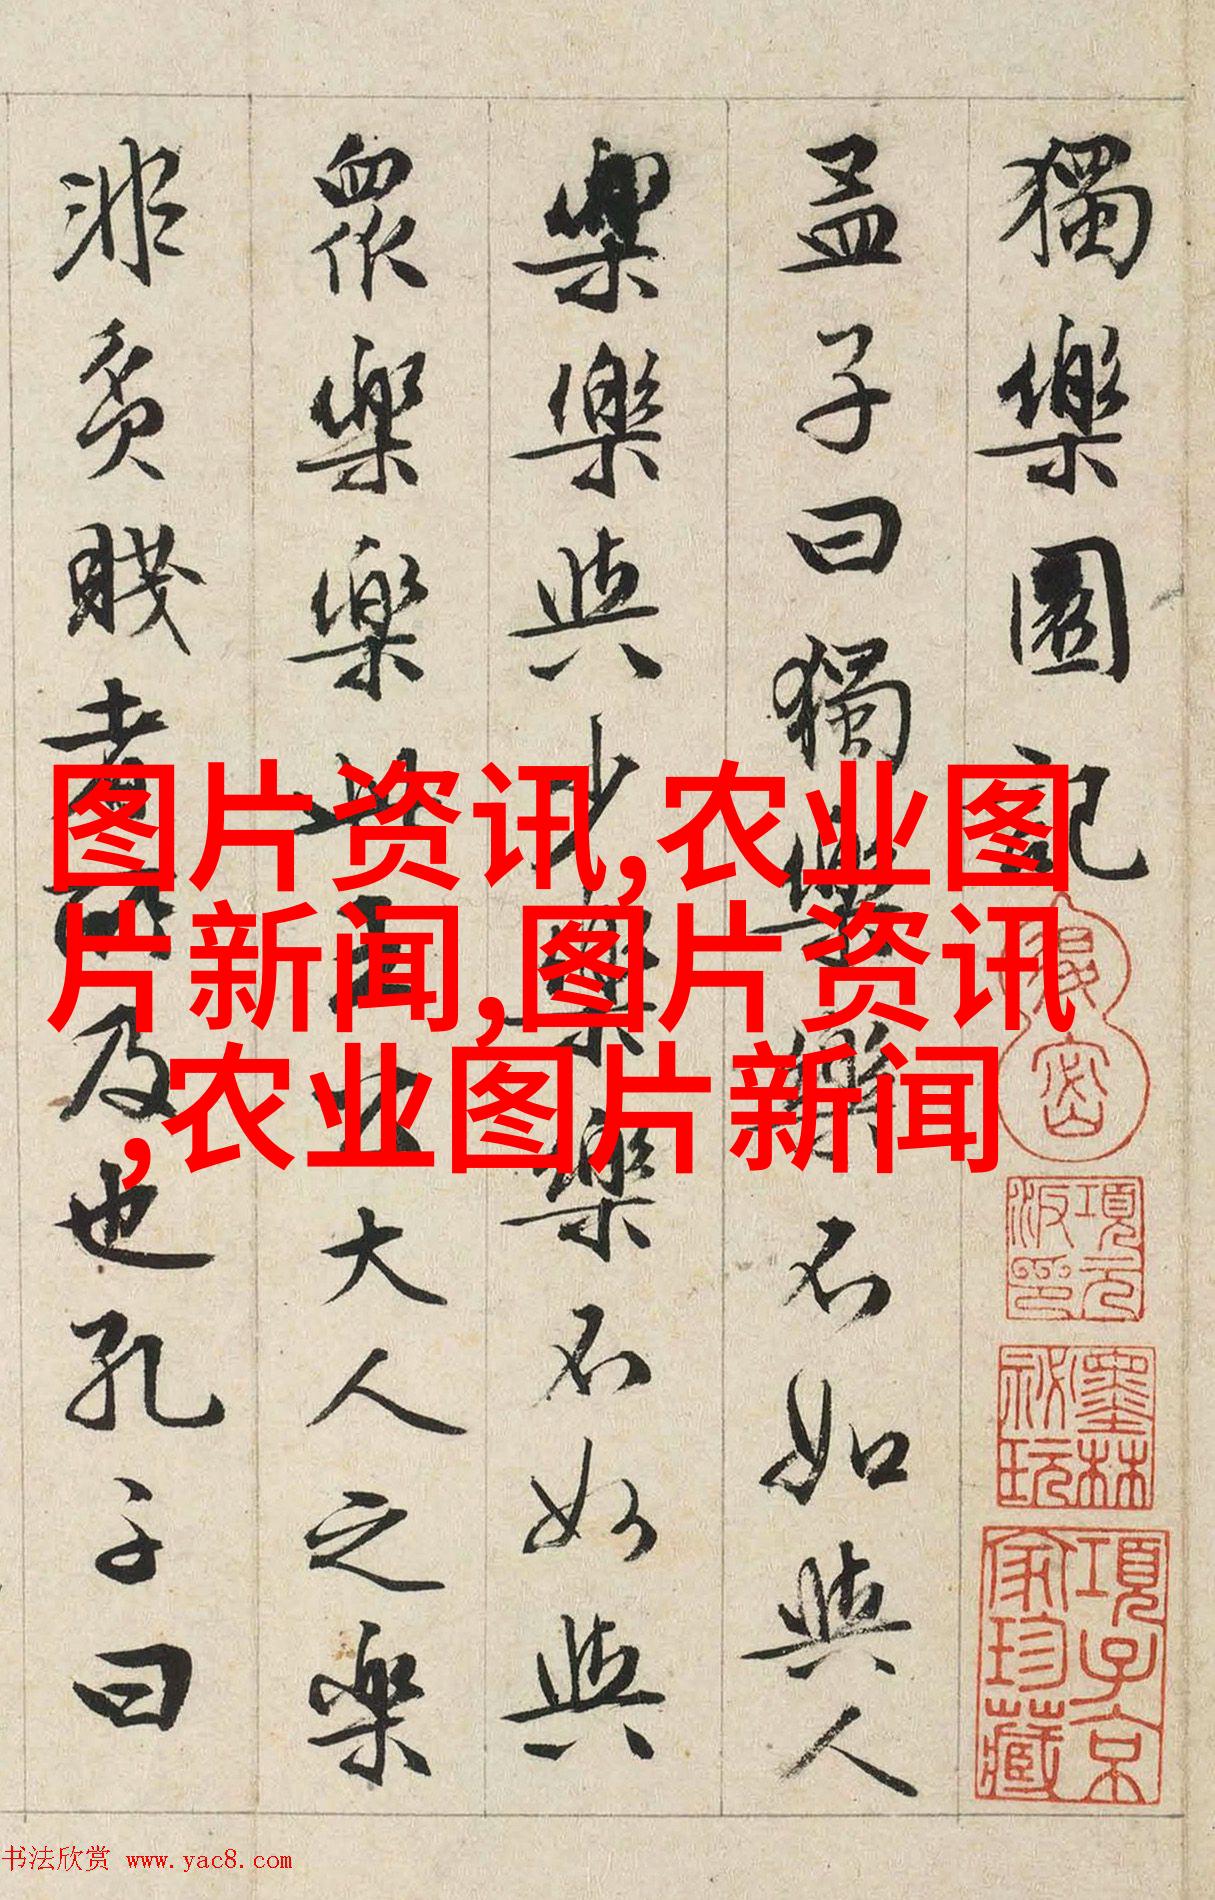 獨樂園記
孟子曰獨樂樂不如與人
樂樂與少樂樂不如與
眾樂樂此王公大人之樂
非貧賤者所及也孔子曰
图片资讯,农业图
片新闻,图片资讯
,农业图片新闻
退密
項元汴印
墨林祕玩
項子京家珍藏
书法欣赏 www.yac8.com